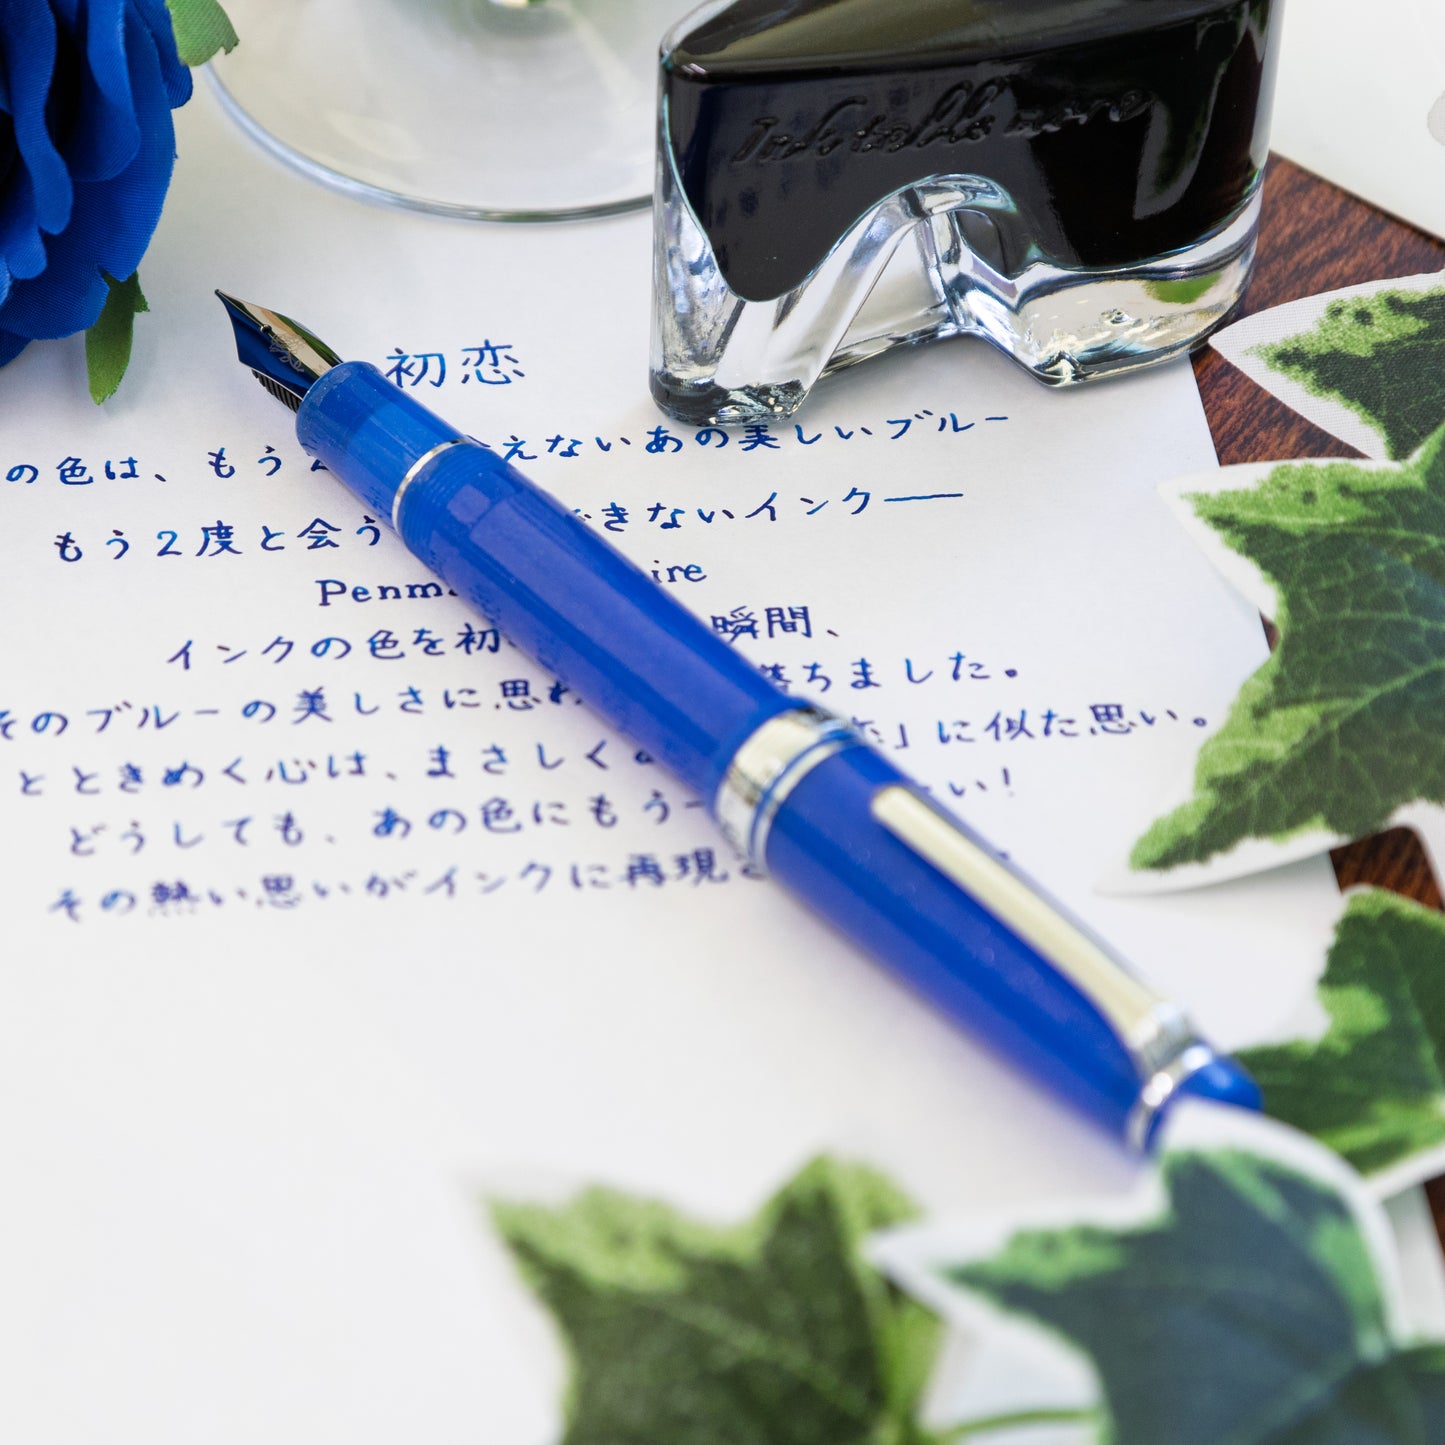 Ink tells more
初恋
の色は、もう えないあの美しいブルー
もう2度と会う できないインク——
Penm ire
インクの色を初 瞬間、
そのブルーの美しさに思わ 落ちました。
とときめく心は、まさしく 恋」に似た思い。
どうしても、あの色にもう一 い！
その熱い思いがインクに再現さ